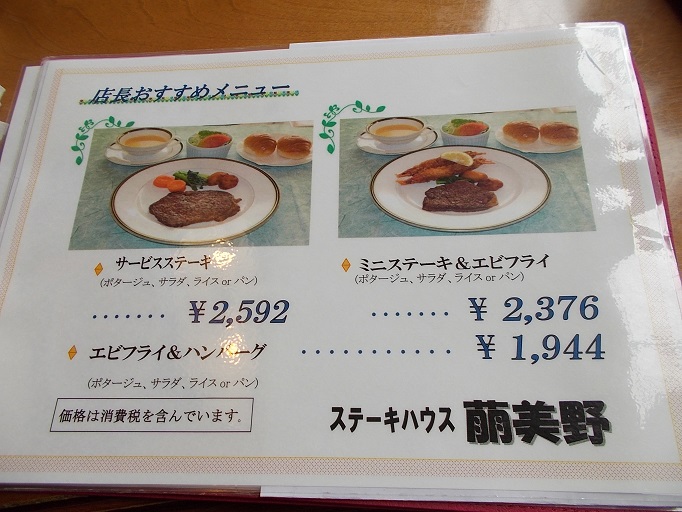 店長おすすめメニュー
サービスステーキ
(ポタージュ、サラダ、ライス or パン)
・・・・・・・ ￥2,592
ミニステーキ＆エビフライ
(ポタージュ、サラダ、ライス or パン)
・・・・・・・ ￥ 2,376
エビフライ＆ハンバーグ ・・・・・・・・・・・ ￥ 1,944
(ポタージュ、サラダ、ライス or パン)
価格は消費税を含んでいます。
ステーキハウス 萠美野